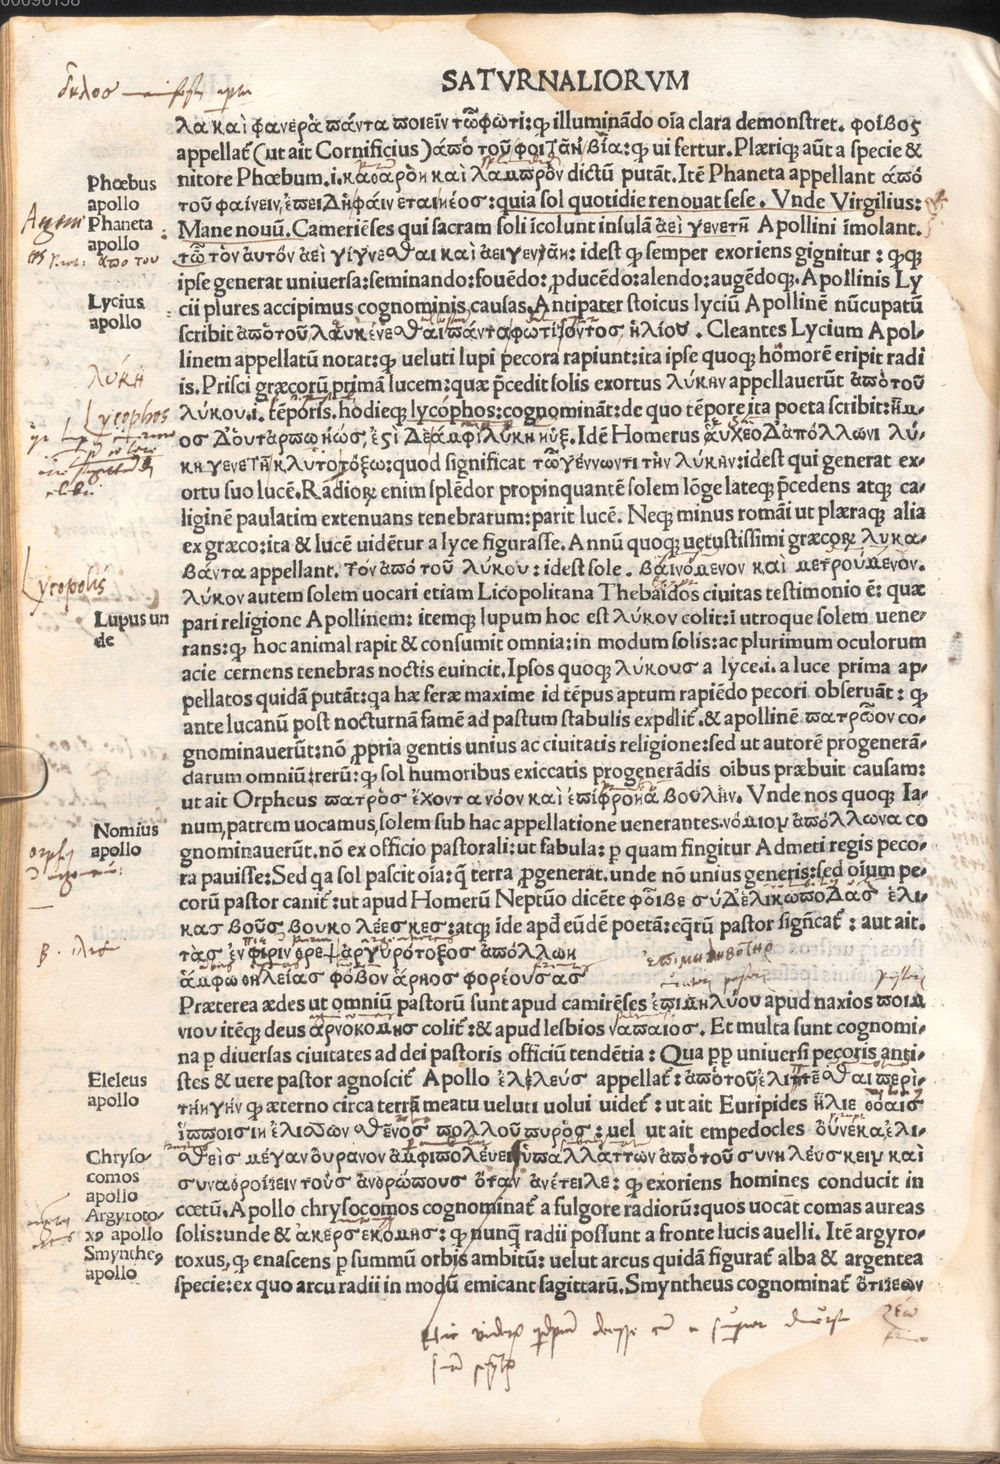 SATVRNALIORVM
λα και φανερὰ πάντα ποιεῖν τῶ φωτι: ꝙ illuminãdo oĩa clara demonstret. φοῖβος
appellat᷑ (ut ait Cornificius) ἀπὸ τοῦ φοιτᾶν βία: ꝙ ui fertur. Plæriqꝫ aũt a specie &
nitore Phœbum .i. καθαρὸν καὶ λαμπρὸν dictũ putãt. Itẽ Phaneta appellant ἀπό
τοῦ φαίνειν, ἐπειδὴ φάινεται νέος: quia sol quotidie renouat sese. Vnde Virgilius:
Mane nouũ. Cameriẽses qui sacram soli ĩcolunt insulã ἀεὶ γενετῆ Apollini ĩmolant.
τῶ τὸν αυτόν ἀεὶ γίγνεσθαι και ἀειγενᾶν: idest ꝙ semper exoriens gignitur: ꝙqꝫ
ipse generat uniuersa: seminando: fouẽdo: ꝓducẽdo: alendo: augẽdoqꝫ. Apollinis Ly
cii plures accipimus cognominis causas. Antipater stoicus lyciũ Apollinẽ nũcupatũ
scribit ἀπὸ τοῦ λευκαίνεσθαι πάντα φωτίζοντος ἡλίου. Cleantes Lycium Apol-
linem appellatũ notat: ꝙ ueluti lupi pecora rapiunt: ita ipse quoqꝫ homorẽ eripit radi
is. Prisci græcorũ primã lucem: quæ p̃cedit solis exortus λύκην appellauerũt ἀπὸ τοῦ
λύκου .i. tẽporis. hodieqꝫ lycóphos: cognominãt: de quo tẽpore ita poeta scribit: ἦμ-
ος δ' οὔτ' ἄρ πω ἠώς, ἔτι δὲ ἀμφιλύκη νὺξ. Idẽ Homerus εὔχεο δ' ἀπόλλωνι λύ-
κηγενετῆ κλυτοτόξω: quod significat τῶ γεννωντι τὴν λύκην: idest qui generat ex-
ortu suo lucẽ. Radioꝝ enim splẽdor propinquantẽ solem lõge lateqꝫ p̃cedens atqꝫ ca-
liginẽ paulatim extenuans tenebrarum: parit lucẽ. Neqꝫ minus romãi ut plæraqꝫ alia
ex græco: ita & lucẽ uidẽtur a lyce figurasse. Annũ quoqꝫ uetustissimi græcoꝝ λυκα-
βάντα appellant. τόν ἀπό τοῦ λύκου: idest sole. βαινόμενον καὶ μετρούμενον.
λύκον autem solem uocari etiam Licopolitana Thebaidos ciuitas testimonio ẽ: quæ
pari religione Apollinem: itemqꝫ lupum hoc est λύκον colit: ĩ utroque solem uene-
rans: ꝙ hoc animal rapit & consumit omnia: in modum solis: ac plurimum oculorum
acie cernens tenebras noctis euincit. Ipsos quoqꝫ λύκουσ a lyce .i. a luce prima ap-
pellatos quidã putãt: qa hæ feræ maxime id tẽpus aptum rapiẽdo pecori obseruãt: ꝙ
ante lucanũ post nocturnã famẽ ad pastum stabulis expelit᷑. & apollinẽ πατρῶον co-
gnominauerũt: nõ ꝓpria gentis unius ac ciuitatis religione: sed ut autorẽ progenerã-
darum omniũ: rerũ: ꝙ sol humoribus exiccatis progenerãdis oĩbus præbuit causam:
ut ait Orpheus πατρὸσ ἔχοντα νόον καὶ ἐπίφρονα βουλὴν. Vnde nos quoqꝫ Ia-
num, patrem uocamus, solem sub hac appellatione uenerantes. νόμιον ἀπόλλωνα co
gnominauerũt. nõ ex officio pastorali: ut fabula: ꝑ quam fingitur Admeti regis peco-
ra pauisse: Sed qa sol pascit oĩa: q̃ terra ꝓgenerat. unde nõ unius generis: sed oĩum pe-
corũ pastor canit᷑: ut apud Homerũ Neptũo dicẽte φοῖβε σὺ δ' εἰλίποδασ ἕλι-
κας βοῦς βουκολέεσκες: atqꝫ idẽ apd̃ eũdẽ poetã: eq̃rũ pastor sign̄cat᷑: aut ait.
τὰσ ἐν φιρίη θρεψ' ἀργυρότοξος ἀπόλλων
ἄμφω θηλείας φόβον ἄρηος φορέουσασ
Præterea ædes ut omniũ pastorũ sunt apud camirẽses ἐπιμηλύου apud naxios ποιμ
νιου itẽqꝫ deus ἀρνοκομησ colit᷑: & apud lesbios ναπαιος. Et multa sunt cognomi-
na ꝑ diuersas ciuitates ad dei pastoris officiũ tendẽtia: Qua ꝓꝑ uniuersi pecoris anti-
stes & uere pastor agnoscit᷑ Apollo ἐλελεύσ appellat᷑: ἀπὸ τοῦ ἑλίττεσθαι περὶ-
τὴν γῆν ꝙ æterno circa terrã meatu ueluti uolui uidet᷑: ut ait Euripides ἥλιε θοαῖσ
ἵπποισιν ἑλίσσων σθένοσ πολλοῦ πυρὸσ: uel ut ait empedocles οὕνεκα ἑλι-
σθεὶσ μέγαν ὀυρανον ἀμφιπολέυει ὑπαλλαττων ἀπὸ τοῦ συνηλευσκειν καὶ
συναθροίζειν τοὺσ ἀνθρώπους ὅταν ἀνέτειλε: ꝙ exoriens homines conducit in
cœtũ. Apollo chrysocomos cognominat᷑ a fulgore radiorũ: quos uocãt comas aureas
solis: unde & ἀκερσεκόμησ: ꝙ nunqꝫ̃ radii possunt a fronte lucis auelli. Itẽ argyro-
toxus, ꝙ enascens ꝑ summũ orbis ambitũ: uelut arcus quidã figurat᷑ alba & argentea
specie: ex quo arcu radii in modũ emicant sagittarũ. Smyntheus cognominat᷑ ὅτι ζέων
Phœbus
apollo
Phaneta
apollo
Lycius
apollo
λύκη
Lycophos
Lycopolis
Lupus un
de
Nomius
apollo
Eleleus
apollo
Chryso-
comos
apollo
Argyroto-
xꝰ apollo
Smyntheꝰ
apollo